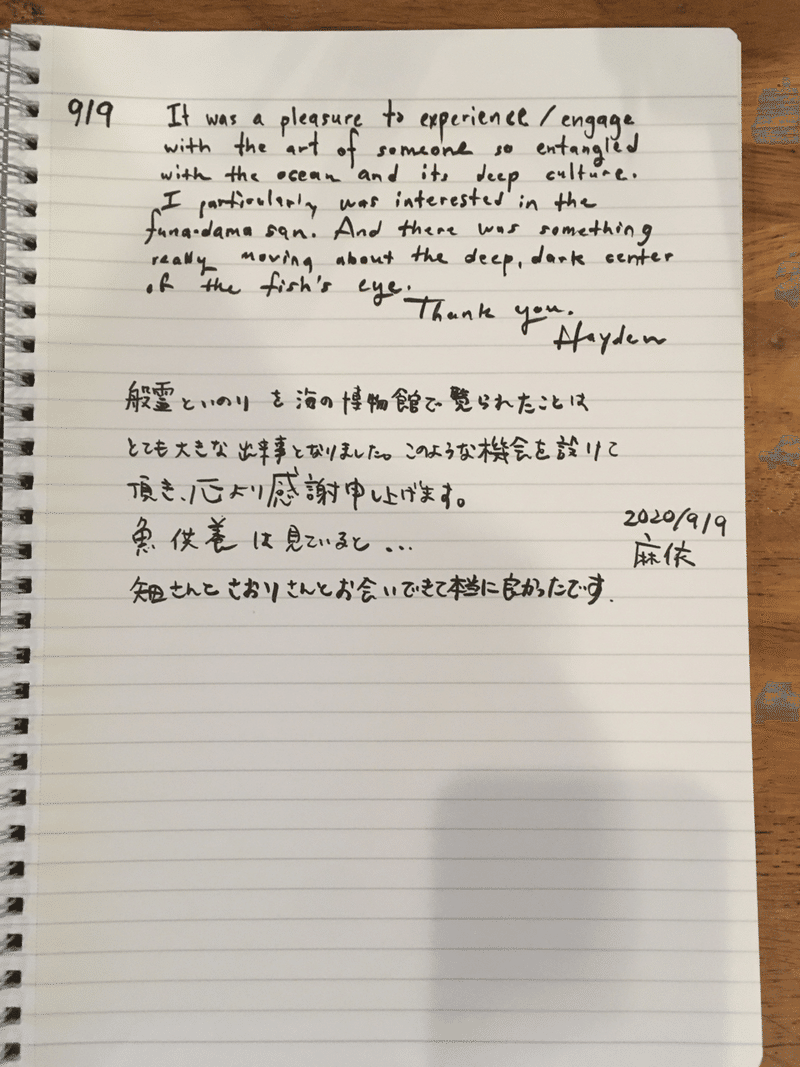 9/9 It was a pleasure to experience/engage
with the art of someone so entangled
with the ocean and its deep culture.
I particularly was interested in the
funa-dama san. And there was something
really moving about the deep, dark center
of the fish's eye.
Thank you.
Hayden
般霊といのり を海の博物館で覧られたことは
とても大きな出来事となりました。このような機会を設けて
頂き、心より感謝申し上げます。
魚供養は見ていると...
2020/9/9
麻依
知田さんと さおりさんとお会いできて本当に良かったです.